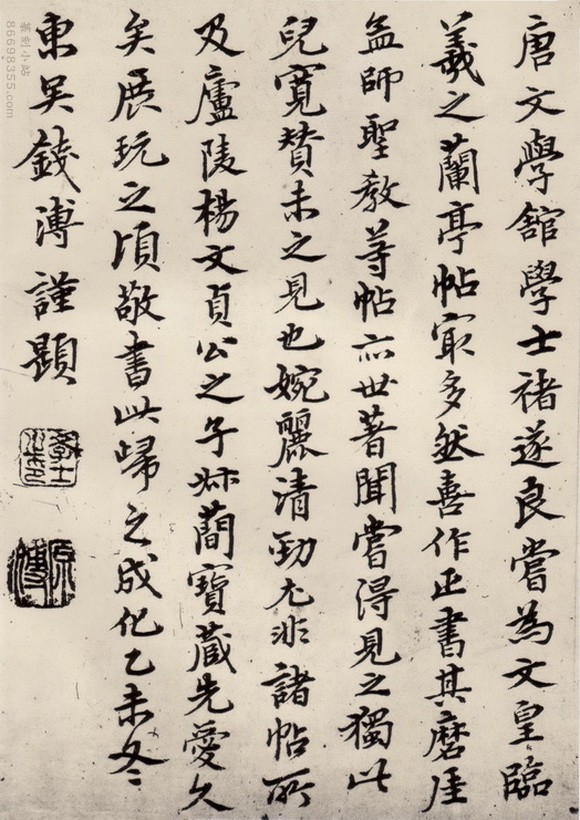 唐文學館學士褚遂良嘗為文皇臨
羲之蘭亭帖㝡多然喜作正書其磨崖
孟師聖教等帖亦世著聞嘗得見之獨此
兒寬贊未之見也婉麗清勁尤非諸帖所
及廬陵楊文貞公之子叔蕑寶藏先愛久
矣展玩之頃敬書此歸之成化乙未冬
東吳錢溥謹題
原溥
篆刻小站
86698355.com